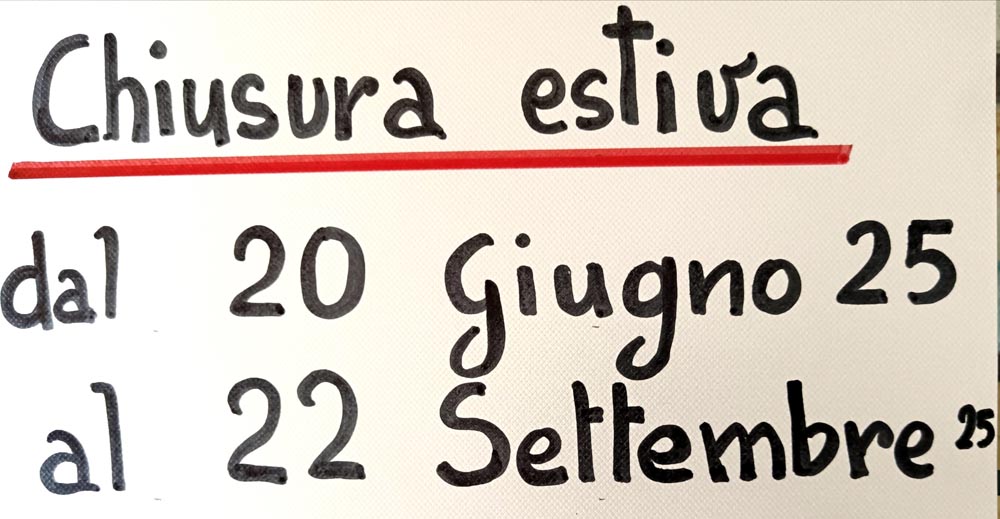 Chiusura estiva
dal 20 Giugno 25
al 22 Settembre 25